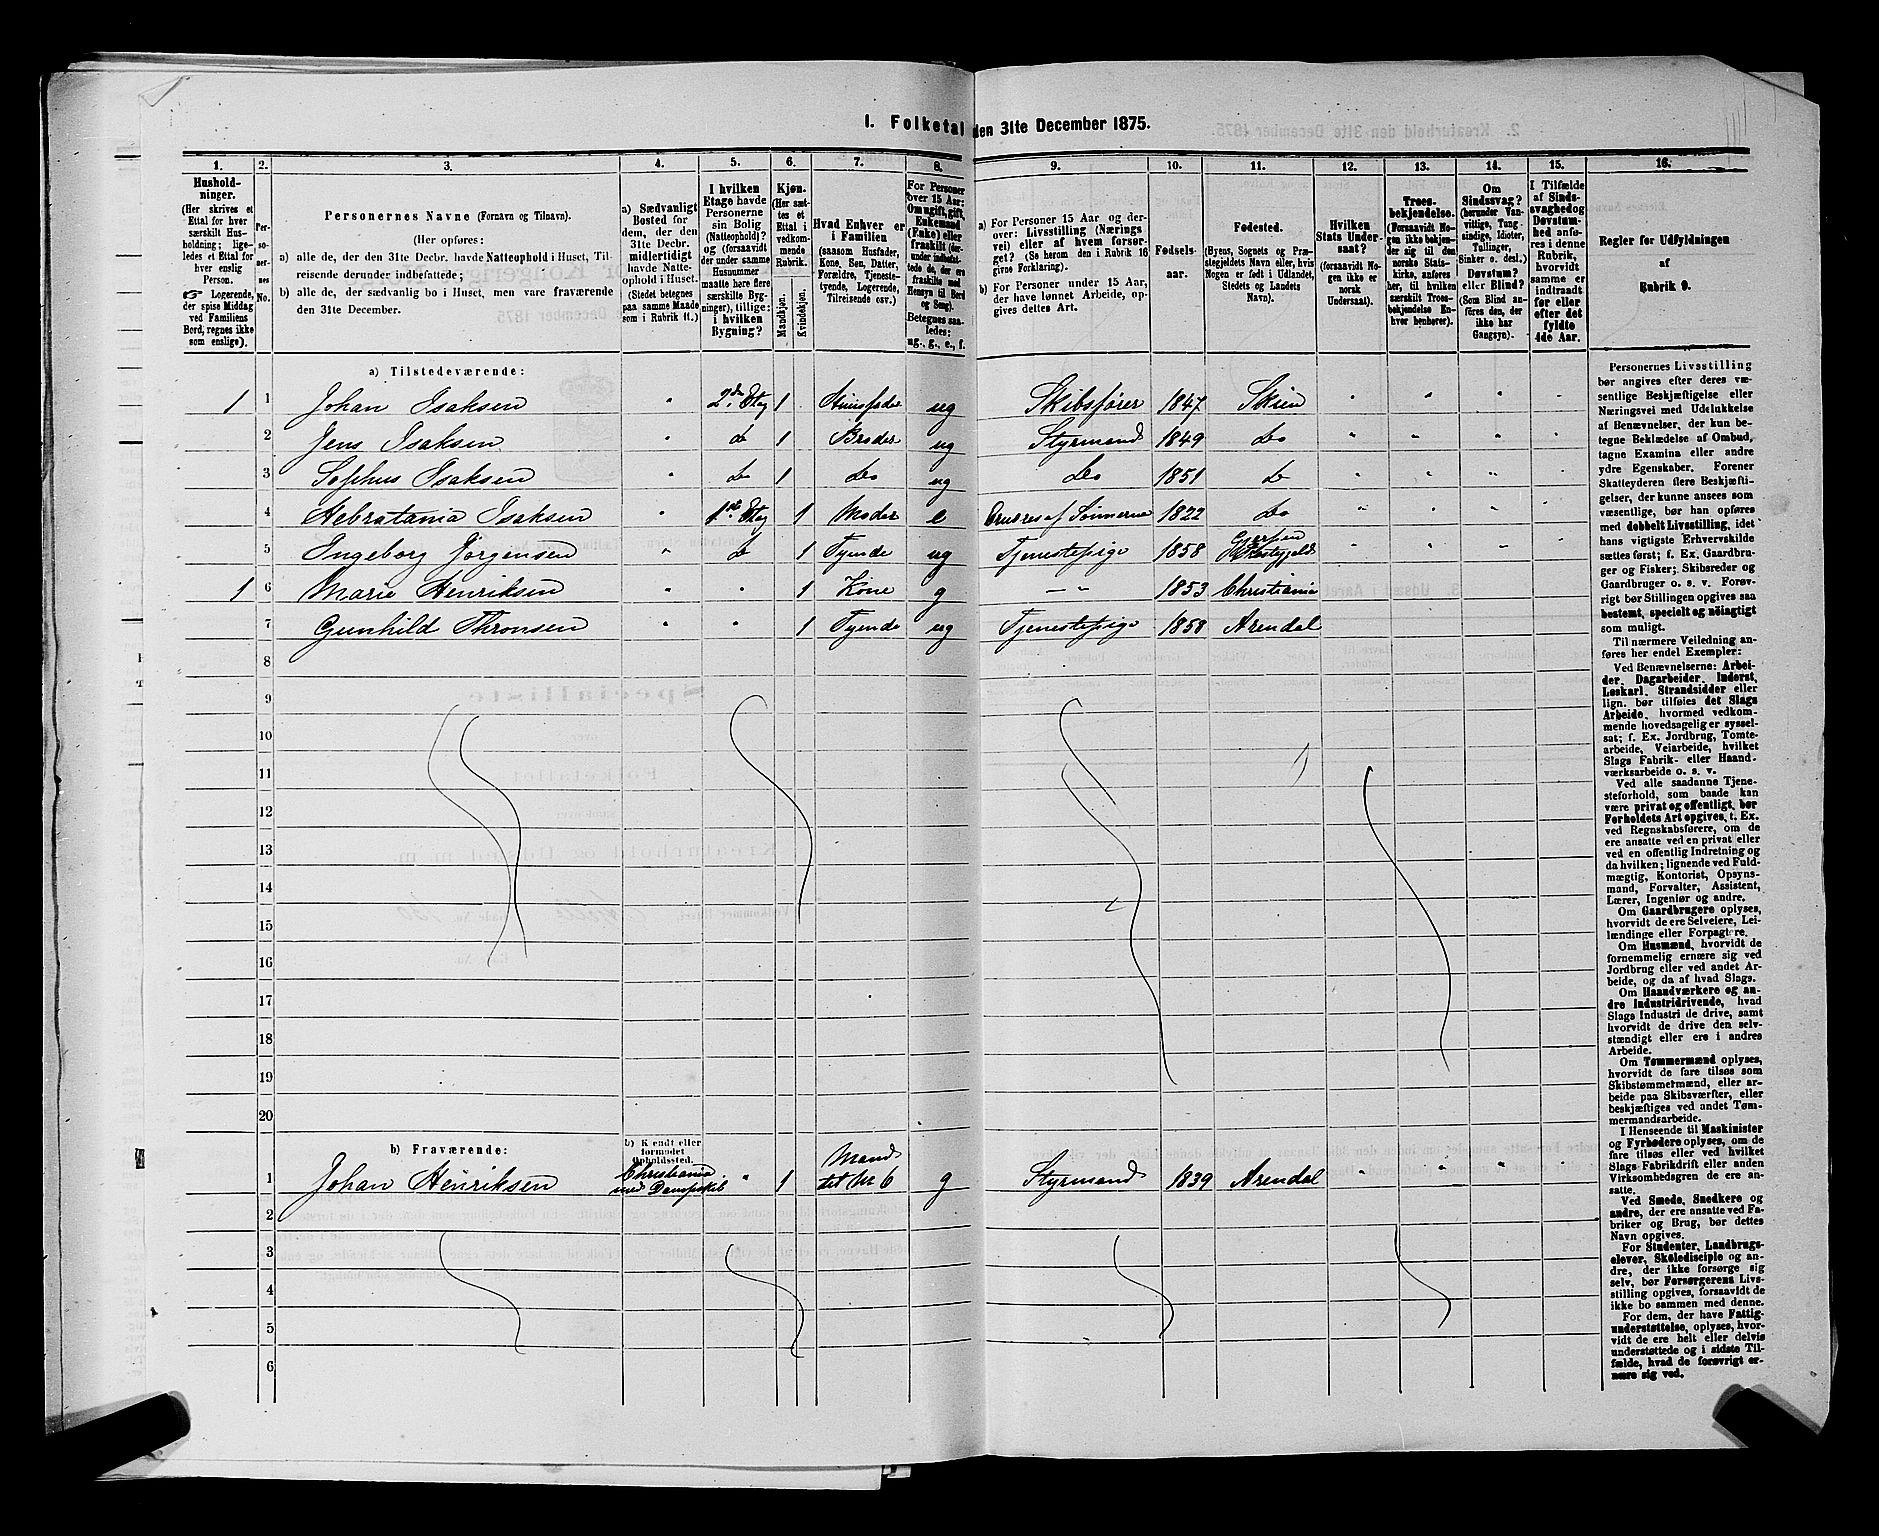 1. Folketal den 31te December 1875.
1. 2. 3. 4. 5. 6. 7. 8. 9. 10. 11. 12. 13. 14. 15. 16.
Hushold-
ninger.
(Her skrives et
Ettal for hver
særskilt Hus-
holdning; lige-
ledes et Ettal for
hver enslig
Person.
☞ Logerende,
der spise Middag
ved Familiens
Bord, regnes ikke
som enslige).
Per-
so-
ner-
nes
No.
Personernes Navne (Fornavn og Tilnavn).
(Her opføres:
a) alle de, der den 31te Decbr. havde Natteophold i Huset, Til-
reisende derunder indbefattede;
b) alle de, der sædvanlig bo i Huset, men vare fraværende
den 31te December.
a) Sædvanligt
Bosted for
dem, der den
31te Decbr.
midlertidigt
havde Natte-
ophold i Huset.
(Stedet betegnes
paa samme Maade
som i Rubrik 11.)
I hvilken
Etage havde
Personerne
sin Bolig
(Natteophold)?
og (forsaavidt
der under samme
Husnummer
maatte høre flere
særskilte Byg-
ninger), tillige:
i hvilken
Bygning?
Kjøn.
(Her sæt-
tes et
Ettal i
vedkom-
mende
Rubrik.
Mandkjøn.
Kvindekjøn.
Hvad Enhver er
i Familien
(saasom Husfader,
Kone, Søn, Datter,
Forældre, Tjeneste-
tyende, Logerende,
Tilreisende osv.)
For Personer
over 15 Aar:
Om ugift, gift,
Enkemand
(Enke) eller
fraskilt (der-
under indbefat-
tede de, der ere
fraskilte med
Hensyn til Bord
og Seng).
Betegnes saa-
ledes:
ug., g., e., f.
a) For Personer 15 Aar og der-
over: Livsstilling (Nærings
vei) eller af hvem forsør-
get? (Se herom den i Rubrik 16
givne Forklaring).
b) For Personer under 15 Aar,
der have lønnet Arbeide, op-
gives dettes Art.
Fødsels-
aar.
Fødested.
(Byens, Sognets og Præ-
stegjeldets Navn eller, hvis
Nogen er født i Udlandet,
Stedets og Landets
Navn).
Hvilken
Stats Under-
saat?
(forsaavidt No-
gen ikke er
norsk
Undersaat).
Troes-
bekjendelse.
(Forsaavidt No-
gen ikke bekjen-
der sig til den
norske Stats-
kirke, anføres
her, til hvilken
særskilt Troes-
bekjendelse En-
hver henhører).
Om
Sindssvag?
(herunder Van-
vittige, Tung-
sindige, Idioter,
Tullinger,
Sinker o. desl.)
Døvstum?
eller Blind?
(Som Blind an-
føres den, der
ikke har
Gangsyn).
I Tilfælde
af Sinds-
svaghed og
Døvstum-
hed anfø-
res i denne
Rubrik,
hvorvidt
samme er
indtraadt
før eller
efter det
fyldte
4de Aar.
Regler for Udfyldningen
af
Rubrik 9.
a) Tilstedeværende:
1 1 Johan Isaksen " 2den Etag 1 Huusfader ug Skibsfører 1847 Skien " " " "
2 Jens Isaksen " do 1 Broder ug Styrmand 1849 do " " " "
3 Sophus Isaksen " do 1 do ug do 1851 do " " " "
4 Hebratania Isaksen " 1ste Etag 1 Moder e Ernæres af Sønnerne 1822 do " " " "
5 Ingeborg Jørgensen " do 1 Tyende ug Tjenestepige 1858 Gjerpen Prestegjeld " " " "
1 6 Marie Henriksen " " 1 Kone g — " 1853 Christiania
7 Gunhild Thronsen " " 1 Tyende ug Tjenestepige 1858 Arendal
8
9
10
11
12
13
14
15
16
17
18
19
20
b) Fraværende:
b) Kjendt eller
formodet
Opholdssted.
1 Johan Henriksen Christiania med Dampskib " 1 Mand til No 6 g Styrmand 1839 Arendal " " " "
2
3
4
5
6
Personernes Livsstilling
bør angives efter deres væ-
sentlige Beskjæftigelse eller
Næringsvei med Udelukkelse
af Benævnelser, der kun be-
tegne Beklædelse af Ombud,
tagne Examina eller andre
ydre Egenskaber. Forener
Skatteyderen flere Beskjæfti-
gelser, der kunne ansees som
væsentlige, bør han opføres
med dobbelt Livsstilling, idet
hans vigtigste Erhvervskilde
sættes først; f. Ex. Gaardbru-
ger og Fisker; Skibsreder og
Gaardbruger o. s. v. Forøv-
rigt bør Stillingen opgives saa
bestemt, specielt og nöiagtigt
som muligt.
Til nærmere Veiledning an-
føres her endel Exempler:
Ved Benævnelserne: Arbei-
der, Dagarbeider, Inderst,
Løskarl, Strandsidder eller
lign. bør tilføies det Slags
Arbeide, hvormed vedkom-
mende hovedsagelig er syssel-
sat; f. Ex. Jordbrug, Tomte-
arbeide, Veiarbeide, hvilket
Slags Fabrik- eller Haand-
værksarbeide o. s. v.
Ved alle saadanne Tjene-
steforhold, som baade kan
være privat og offentligt, bør
Forholdets Art opgives, t. Ex.
ved Regnskabsførere, om de
ere ansatte ved en privat eller
ved en offentlig Indretning og
da hvilken; lignende ved Fuld-
mægtig, Kontorist, Opsyns-
mand, Forvalter, Assistent,
Lærer, Ingeniør og andre.
Om Gaardbrugere oplyses,
hvorvidt de ere Selveiere, Lei-
lændinge eller Forpagtere.
Om Husmænd, hvorvidt de
fornemmelig ernære sig ved
Jordbrug eller ved andet Ar-
beide, og da af hvad Slags.
Om Haandværkere og an-
dre Industridrivende, hvad
Slags Industri de drive, samt
hvorvidt de drive den selv-
stændigt eller ere i andres
Arbeide.
Om Tømmermænd oplyses,
hvorvidt de fare tilsøs som
Skibstømmermænd, eller ar-
beide paa Skibsværfter, eller
beskjæftiges ved andet Tøm-
mermandsarbeide.
I Henseende til Maskinister
og Fyrbødere oplyses, om de
fare tilsøs eller ved hvilket
Slags Fabrikdrift eller anden
Virksomhedsgren de ere an-
satte.
Ved Smede, Snedkere og
andre, der ere ansatte ved Fa-
briker og Brug, bør dettes
Navn opgives.
For Studenter, Landbrugs-
elever, Skoledisciple og an-
dre, der ikke forsørge sig
selv, bør Forsørgerens Livs-
stilling opgives, forsaavidt de
ikke bo sammen med denne.
For dem, der have Fattig-
understøttelse, oplyses, hvor-
vidt de ere helt eller delvis
understøttede og i sidste Til-
fælde, hvad de forøvrigt er-
nære sig ved.